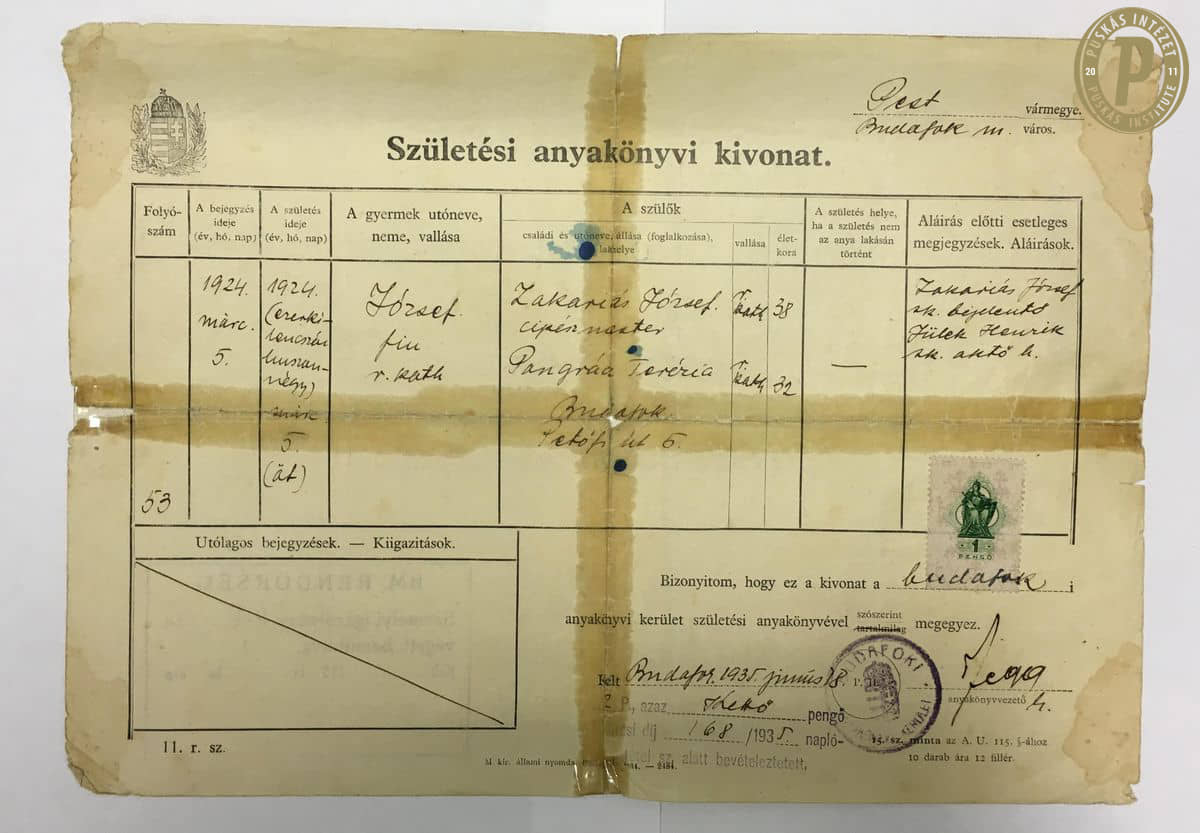 PUSKÁS INTÉZET
20 P 11
PUSKÁS INSTITUTE
Pest vármegye.
Budafok m. város.
Születési anyakönyvi kivonat.
Folyó-
szám
A bejegyzés
ideje
(év, hó, nap)
A születés
ideje
(év, hó, nap)
A gyermek utóneve,
neme, vallása
A szülők
családi és utóneve, állása (foglalkozása),
lakhelye
vallása
élet-
kora
A születés helye,
ha a születés nem
az anya lakásán
történt
Aláírás előtti esetleges
megjegyzések. Aláírások.
53
1924.
márc.
5.
1924.
(ezerki-
lencszáz
huszon-
négy)
márc.
5.
(öt)
József.
fiu
r. kath
Zakariás József.
cipészmester
r. kath 38
Terézia
r. kath 32
Budafok
Petőfi út 6.
—
Zakariás József
sk. bejelentő
Henrik
sk. h.
1
PENGŐ
Utólagos bejegyzések. — Kiigazítások.
Bizonyitom, hogy ez a kivonat a budafok i
anyakönyvi kerület születési anyakönyvével szószerint
tartalmilag megegyez.
Kelt Budafok, 1935. június 18.
P. H.
BUDAFOKI
anyakönyvezető h.
2 P., azaz Kettő pengő
díj 168/1935. napló-
sz. alatt bevételeztetett.
11. r. sz.
M. kir. állami nyomda
2484.
15. sz. minta az A. U. 115. §-ához
10 darab ára 12 fillér.